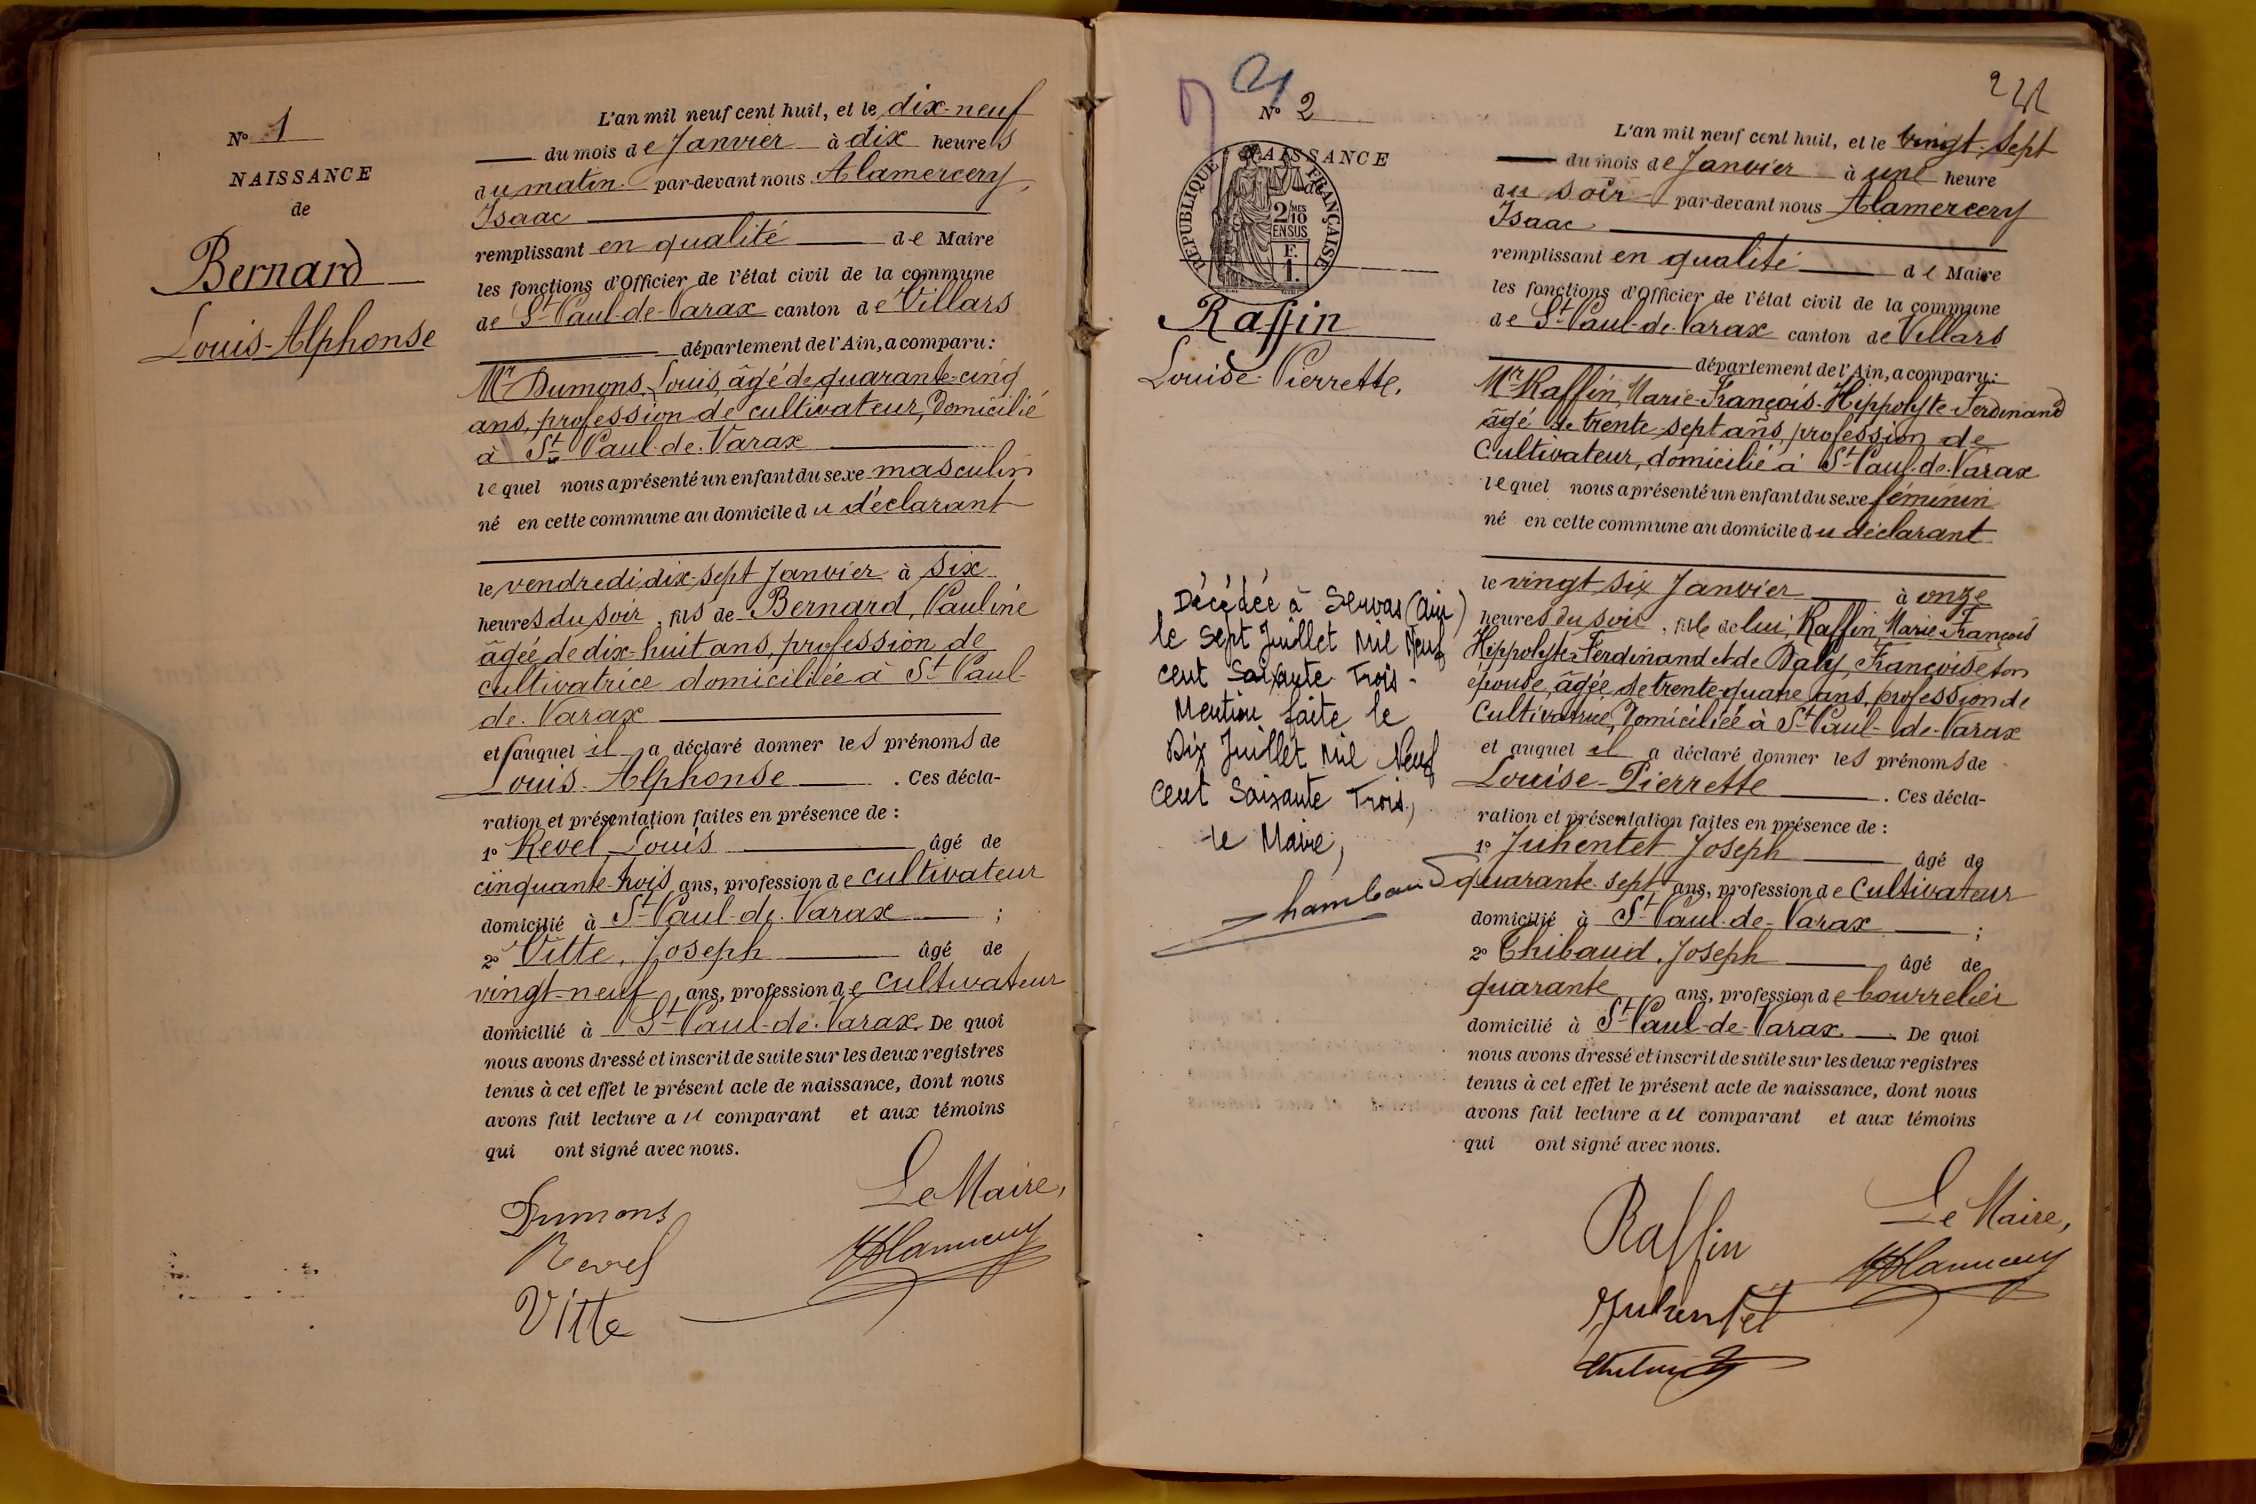 N° 1
NAISSANCE
de
Bernard
Louis-Alphonse
L'an mil neuf cent huit, et le dix-neuf
du mois de Janvier à dix heures
du matin par-devant nous Alamercery,
Isaac
remplissant en qualité de Maire
les fonctions d'Officier de l'état civil de la commune
de St Paul-de-Varax canton de Villars
département de l'Ain, a comparu:
Mr Dumons, Louis, âgé de quarante-cinq
ans, profession de cultivateur, domicilié
à St Paul-de-Varax
lequel nous a présenté un enfant du sexe masculin
né en cette commune au domicile du déclarant
le vendredi dix-sept Janvier à six
heures du soir, fils de Bernard, Pauline
âgée de dix-huit ans, profession de
cultivatrice domiciliée à St Paul-
de-Varax
et auquel il a déclaré donner les prénoms de
Louis-Alphonse. Ces décla-
ration et présentation faites en présence de :
1° Revel, Louis âgé de
cinquante-trois ans, profession de cultivateur
domicilié à St Paul-de-Varax ;
2° Vitte, Joseph âgé de
vingt-neuf ans, profession de cultivateur
domicilié à St Paul-de-Varax. De quoi
nous avons dressé et inscrit de suite sur les deux registres
tenus à cet effet le présent acte de naissance, dont nous
avons fait lecture au comparant et aux témoins
qui ont signé avec nous.
Le Maire,
Dumons
Revel
Vitte
N° 2
NAISSANCE
de
RÉPUBLIQUE FRANÇAISE
2/10MES
EN SUS
F.
1.
Raffin
Louise-Pierrette.
Décédée à Servas (Ain)
le Sept Juillet Mil Neuf
cent Soixante Trois -
Mention faite le
Dix Juillet Mil Neuf
cent Soixante Trois,
le Maire,
L'an mil neuf cent huit, et le vingt-sept
du mois de Janvier à une heure
du soir par-devant nous Alamercery
Isaac
remplissant en qualité de Maire
les fonctions d'Officier de l'état civil de la commune
de St Paul-de-Varax canton de Villars
département de l'Ain, a comparu:
Mr Raffin, Marie-François-Hippolyte-Ferdinand
âgé de trente-sept ans, profession de
Cultivateur, domicilié à St Paul-de-Varax
lequel nous a présenté un enfant du sexe féminin
né en cette commune au domicile du déclarant
le vingt six Janvier à onze
heures du soir, fille de lui, Raffin, Marie-François
Hippolyte-Ferdinand et de Daly, Françoise son
épouse, âgée de trente-quatre ans, profession de
Cultivatrice, domiciliée à St Paul-de-Varax
et auquel il a déclaré donner les prénoms de
Louise-Pierrette. Ces décla-
ration et présentation faites en présence de :
1° Juhentet Joseph âgé de
quarante-sept ans, profession de Cultivateur
domicilié à St Paul-de-Varax ;
2° Thibaud, Joseph âgé de
quarante ans, profession de bourrelier
domicilié à St Paul-de-Varax. De quoi
nous avons dressé et inscrit de suite sur les deux registres
tenus à cet effet le présent acte de naissance, dont nous
avons fait lecture au comparant et aux témoins
qui ont signé avec nous.
Le Maire,
Raffin
Juhentet